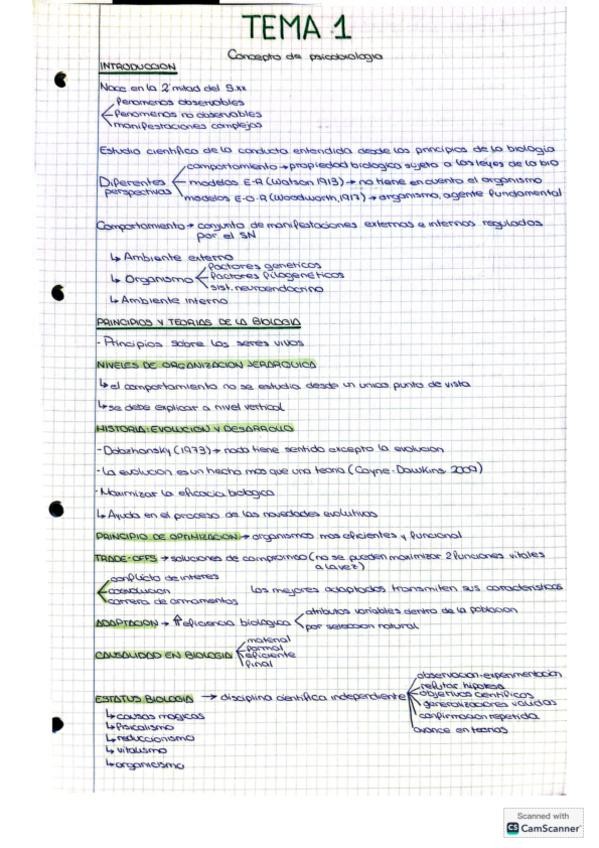 TEMA 1
Concepto de psicobiologia
INTRODUCCION
Nace en la 2ª mitad del S.XX
fenomenos observables
fenomenos no observables
manifestaciones complejas
Estudio cientifico de la conducta entendida desde los principios de la biologia
Diferentes perspectivas
comportamiento → propiedad biologica sujeto a las leyes de la bio
modelos E-R (Watson 1913) → no tiene en cuenta el organismo
modelos E-O-R (Woodworth, 1917) → organismo, agente fundamental
Comportamiento → conjunto de manifestaciones externas e internas reguladas
por el SN
↳ Ambiente externo
↳ Organismo
factores geneticos
factores filogeneticos
sist. neuroendocrino
↳ Ambiente interno
PRINCIPIOS Y TEORIAS DE LA BIOLOGIA
- Principios sobre los seres vivos
NIVELES DE ORGANIZACION JERARQUICA
↳ el comportamiento no se estudia desde un unico punto de vista
↳ se debe explicar a nivel vertical
HISTORIA: EVOLUCION Y DESARROLLO
- Dobzhansky (1973) → nada tiene sentido excepto la evolucion
- La evolucion es un hecho mas que una teoria (Coyne-Dawkins 2009)
- Maximizar la eficacia biologica
↳ Ayuda en el proceso de las novedades evolutivas
PRINCIPIO DE OPTIMIZACION → organismos mas eficientes y funcional
TRADE-OFFS → soluciones de compromiso (no se pueden maximizar 2 funciones vitales
a la vez)
conflicto de interes
coevolucion
carrera de armamentos
los mejores adaptados transmiten sus caracteristicas
ADAPTACION → ↑ eficiencia biologica
atributos variables dentro de la poblacion
por seleccion natural
CAUSALIDAD EN BIOLOGIA
material
formal
eficiente
final
ESTATUS BIOLOGIA → disciplina cientifica independiente
observacion-experimentacion
refutar hipotesis
objetivos cientificos
generalizaciones validas
confirmacion repetida
avance en teorias
↳ causas magicas
↳ fisicalismo
↳ reduccionismo
↳ vitalismo
↳ organicismo
Scanned with
CS CamScanner